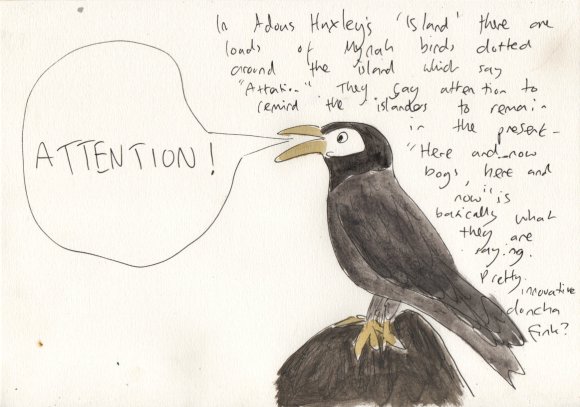 In Adous Huxley's 'Island' there are
loads of Mynah birds dotted
around the island which say
"Attention". They say attention to
remind the islanders to remain
in the present -
"Here and now
boys, here and
now" is
basically what
they are
saying.
Pretty
innovative
doncha
fink?
ATTENTION!